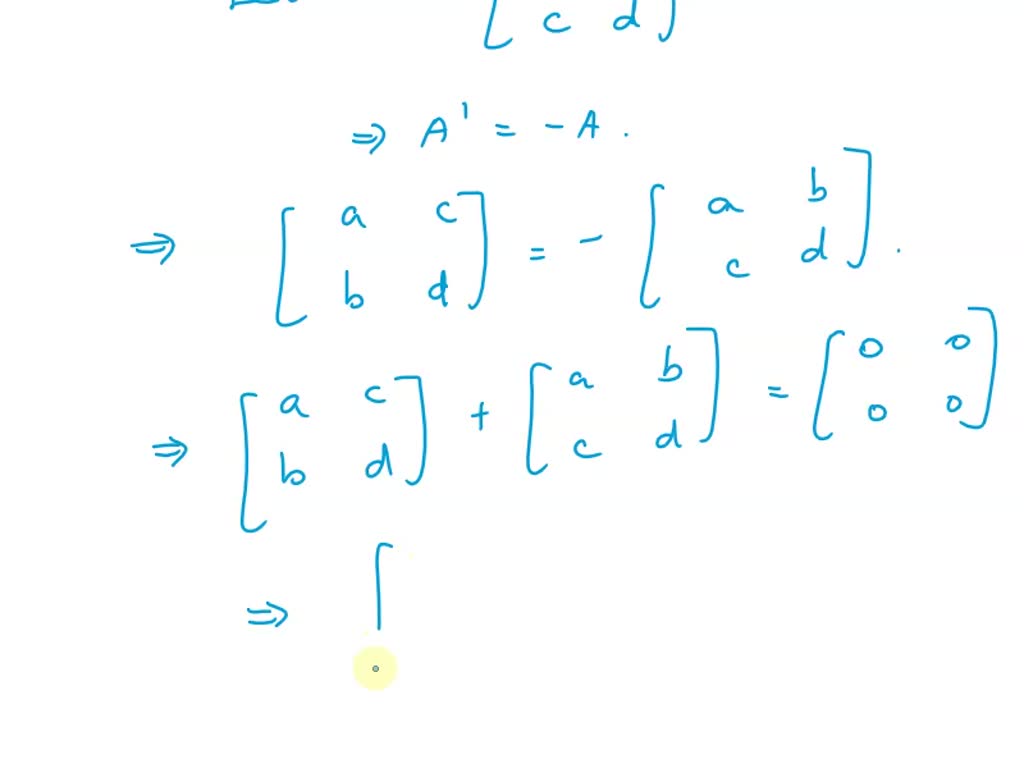 [ c d ]
⇒ A' = -A .
⇒ [ a c ; b d ] = - [ a b ; c d ] .
⇒ [ a c ; b d ] + [ a b ; c d ] = [ 0 0 ; 0 0 ]
⇒ [